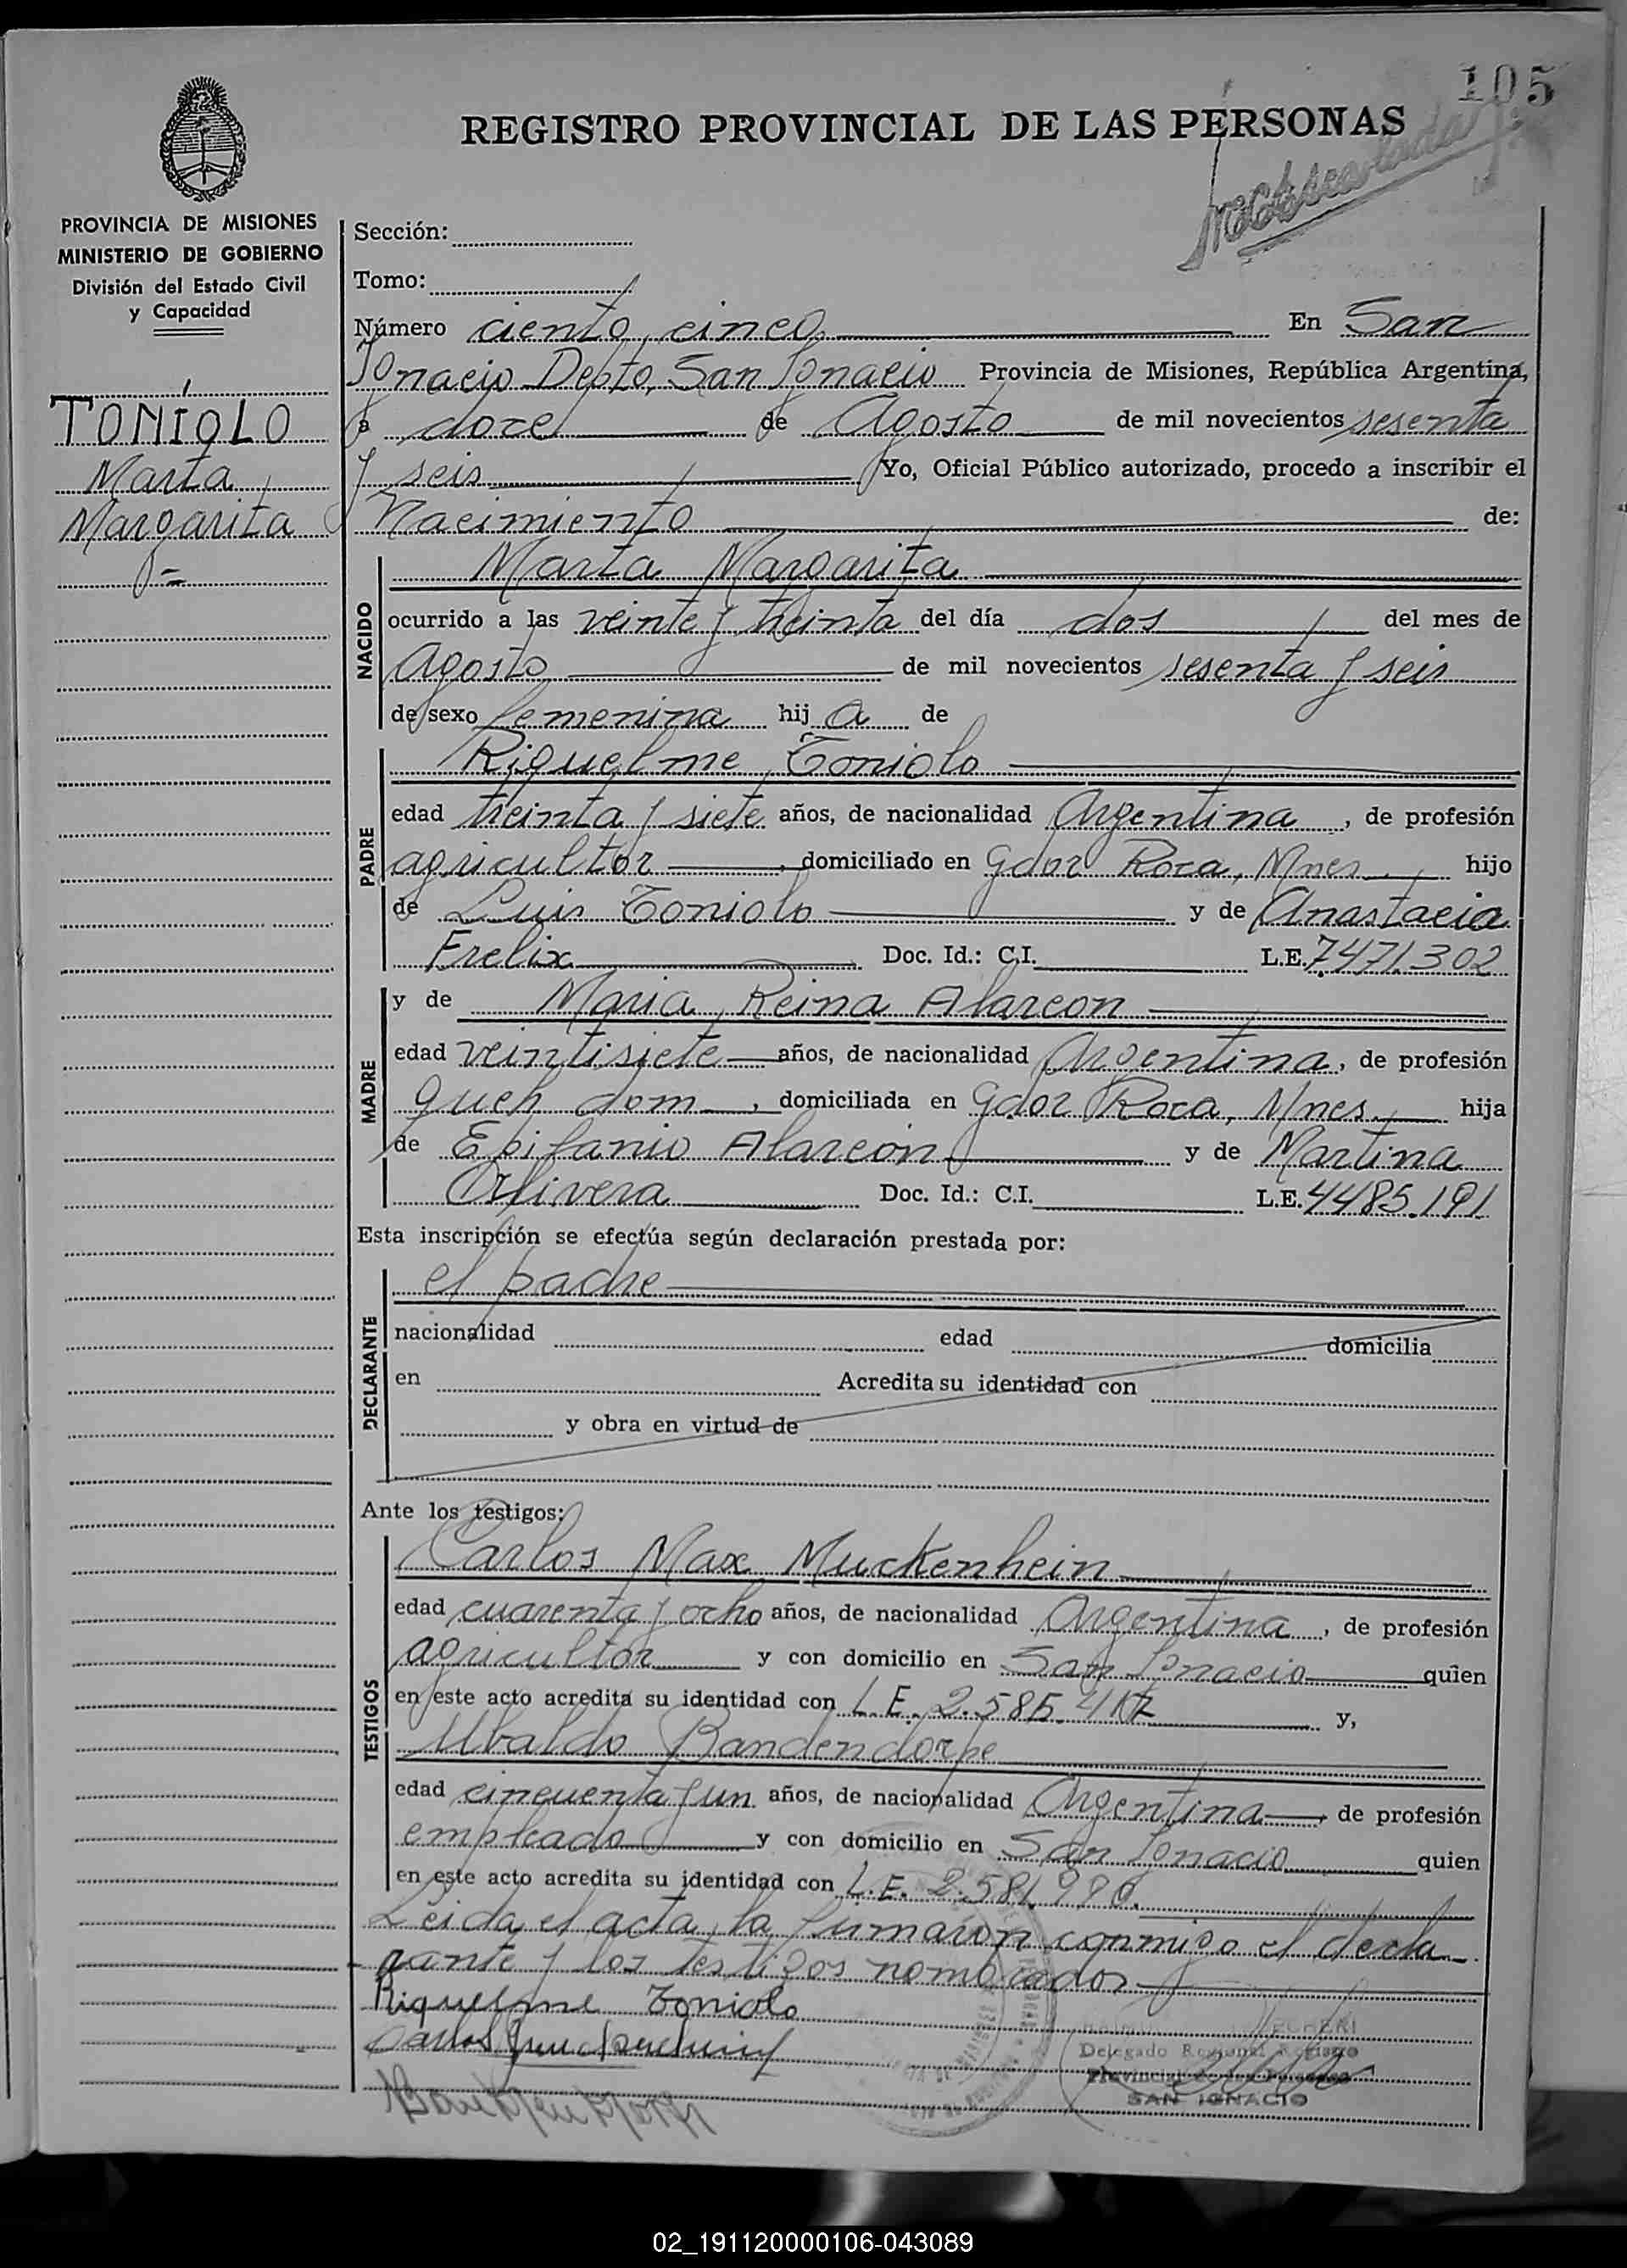 105
REGISTRO PROVINCIAL DE LAS PERSONAS
PROVINCIA DE MISIONES
MINISTERIO DE GOBIERNO
División del Estado Civil
y Capacidad
TONIOLO
Marta
Margarita
Sección:
Tomo:
Número ciento cinco En San
Ignacio Depto. San Ignacio Provincia de Misiones, República Argentina,
a doce de Agosto de mil novecientos sesenta
y seis Yo, Oficial Público autorizado, procedo a inscribir el
Nacimiento de:
NACIDO
Marta Margarita
ocurrido a las veinte y treinta del día dos del mes de
Agosto de mil novecientos sesenta y seis
de sexo femenina hij a de
PADRE
Riquelme Toniolo
edad treinta y siete años, de nacionalidad Argentina, de profesión
agricultor, domiciliado en Gdor Roca, Mnes hijo
de Luis Toniolo y de Anastacia
Frelix Doc. Id.: C.I. L.E. 7471.302
MADRE
y de Maria Reina Alarcon
edad veintisiete años, de nacionalidad Argentina, de profesión
queh dom, domiciliada en Gdor Roca, Mnes. hija
de Epifanio Alarcón y de Martina
Olivera Doc. Id.: C.I. L.E. 4485.191
Esta inscripción se efectúa según declaración prestada por:
DECLARANTE
el padre
nacionalidad edad domicilia
en Acredita su identidad con
y obra en virtud de
Ante los testigos:
TESTIGOS
Carlos Max Muckenhein
edad cuarenta y ocho años, de nacionalidad Argentina, de profesión
agricultor y con domicilio en San Ignacio quien
en este acto acredita su identidad con L.E. y,
Ubaldo Bandendorpe
edad cincuenta y un años, de nacionalidad Argentina de profesión
empleado y con domicilio en San Ignacio quien
en este acto acredita su identidad con L.E.
Leida el acta, la firmaron conmigo el decla
rante y los testigos nombrados
Riquelme Toniolo
Carlos
Delegado Regional Registro
Provincial de las Personas
SAN IGNACIO
02_191120000106-043089